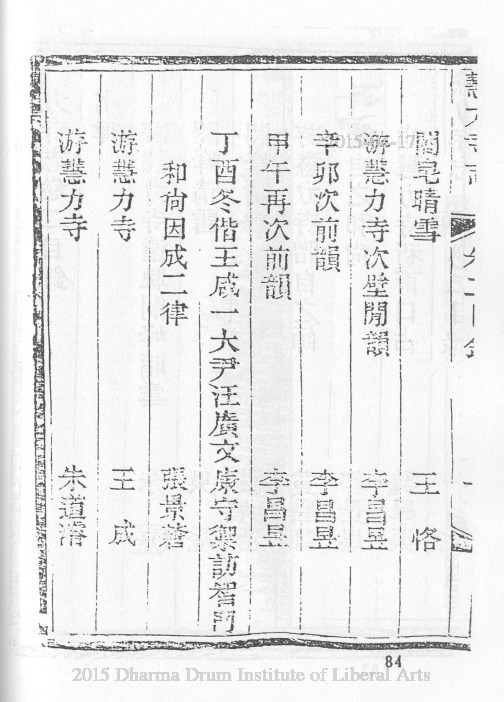 慧力寺志
卷二目錄
一
閣皂晴雪 王恪
游慧力寺次壁閒韻 李昌昱
辛卯次前韻 李昌昱
甲午再次前韻 李昌昱
丁酉冬偕王咸一大尹汪廣文康守禦訪智門
和尚因成二律 張景蒼
游慧力寺 王成
游慧力寺 朱道濳
84
2015 Dharma Drum Institute of Liberal Arts